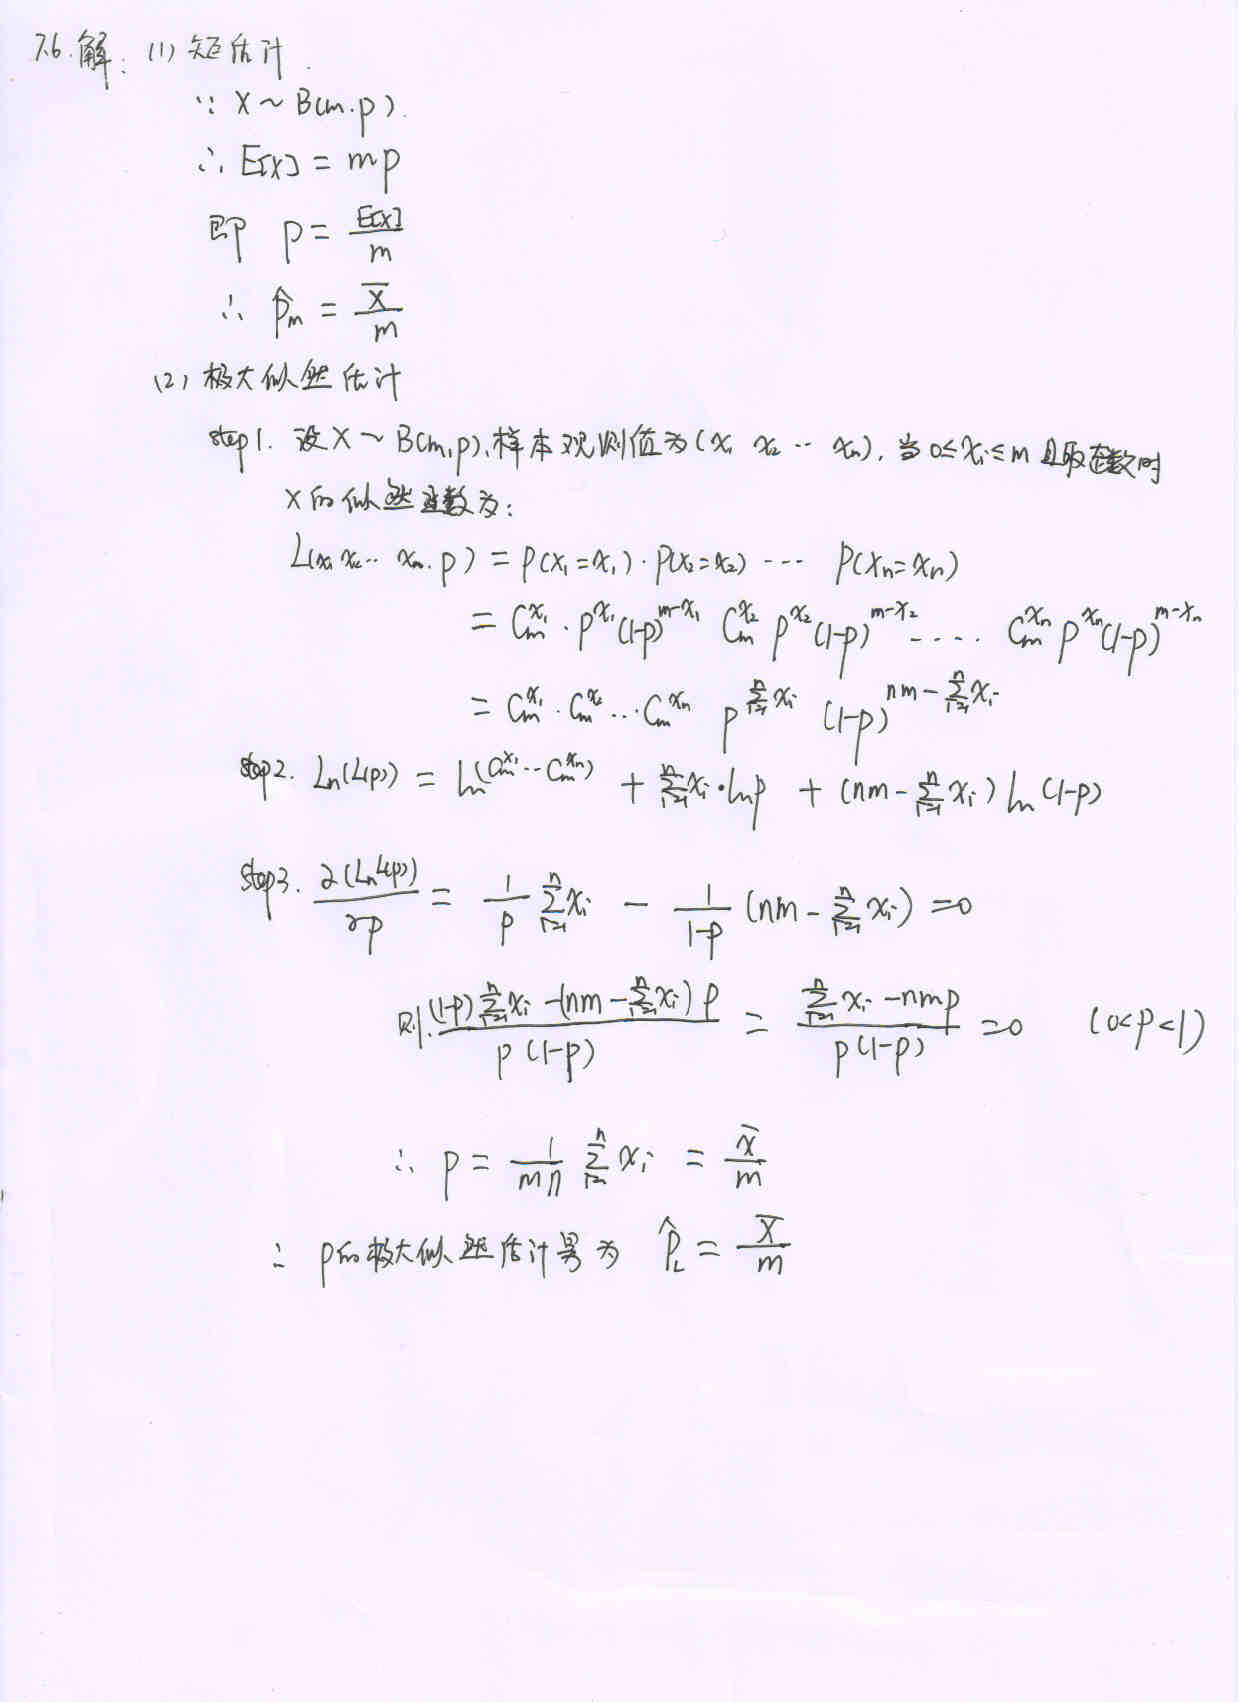 7.6.解: (1) 矩估计.
∵ X ~ B(m.p).
∴ E[X] = mp
即 p = E[X]/m
∴ p̂_m = X̄/m
(2) 极大似然估计
step1. 设 X ~ B(m,p), 样本观测值为(x₁ x₂ ··· xₙ), 当 0≤xᵢ≤m 且取整数时
X的似然函数为:
L(x₁ x₂··· xₙ. p) = P(X₁=x₁)·P(X₂=x₂) ··· P(Xₙ=xₙ)
= C_m^{x₁}·p^{x₁}(1-p)^{m-x₁} C_m^{x₂} p^{x₂}(1-p)^{m-x₂} ····· C_m^{xₙ} p^{xₙ}(1-p)^{m-xₙ}
= C_m^{x₁}·C_m^{x₂}···C_m^{xₙ} p^{∑_{i=1}^{n} xᵢ} (1-p)^{nm-∑_{i=1}^{n} xᵢ}
step2. Ln(L(p)) = ln(C_m^{x₁}···C_m^{xₙ}) + ∑_{i=1}^{n} xᵢ·lnp + (nm-∑_{i=1}^{n} xᵢ) ln(1-p)
step3. ∂(Ln L(p))/∂p = 1/p ∑_{i=1}^{n} xᵢ - 1/(1-p) (nm-∑_{i=1}^{n} xᵢ) =0
则. ((1-p)∑_{i=1}^{n} xᵢ -(nm-∑_{i=1}^{n} xᵢ) p)/(p(1-p)) = (∑_{i=1}^{n} xᵢ -nmp)/(p(1-p)) =0 (0<p<1)
∴ p = 1/(mn) ∑_{i=1}^{n} xᵢ = x̄/m
∴ p的极大似然估计量为 p̂_L = X̄/m